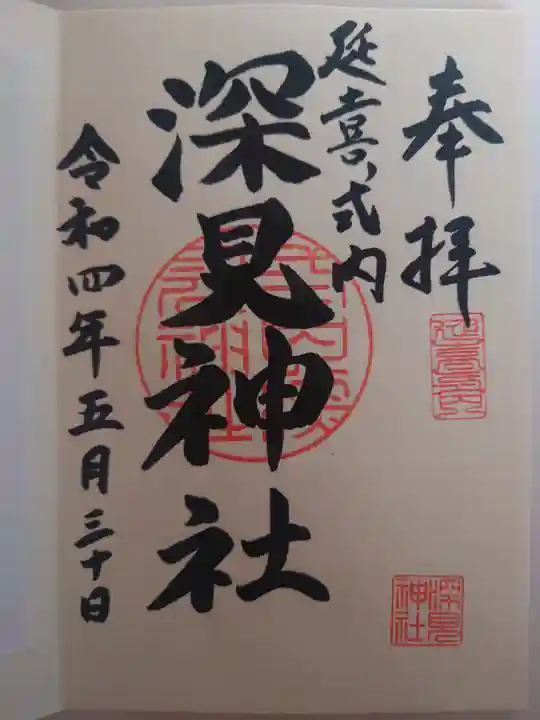 奉拝
延喜式内
深見神社
令和四年五月三十日
延喜式内
深見神社